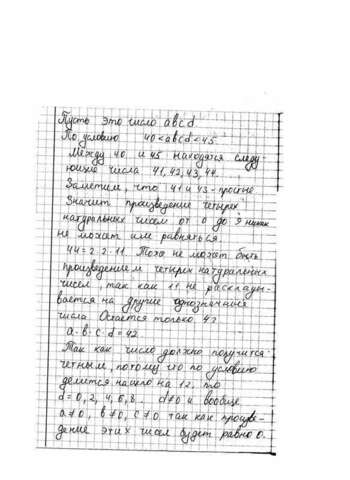 Пусть это число abcd.
По условию 40<abcd<45.
Между 40 и 45 находятся следу-
ющие числа 41, 42, 43, 44.
Заметим, что 41 и 43 - простые
Значит произведение четырех
натуральных чисел от 0 до 9 никак
не может им равняться.
44=2·2·11. Тоже не может быть
произведением четырех натуральных
чисел, так как 11 не расклады-
вается на другие однозначные
числа. Остается только 42
a·b·c·d=42
Так как число должно получится
четным, потому что по условию
делится нацело на 12, то
d=0,2,4,6,8. d≠0 и вообще
a≠0, b≠0, c≠0 так как произве-
дение этих чисел будет равно 0.